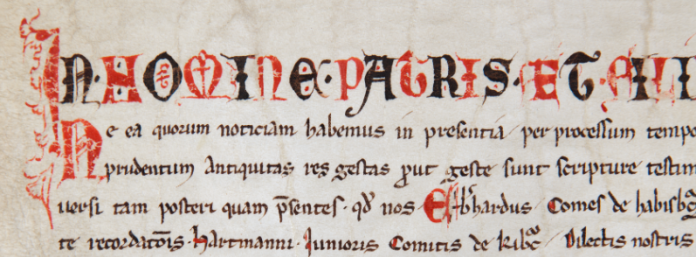 IN·NOMINE·PATRIS·ET·FILI
Ne ea quorum noticiam habemus in presentia per processum tempo
prudentum antiquitas res gestas put geste sunt scripture testim
uersi tam posteri quam psentes· qd nos Ebhardus Comes de habisbg
te recordatois·hartmanni·Junioris Comitis de kibc Dilectis nostris